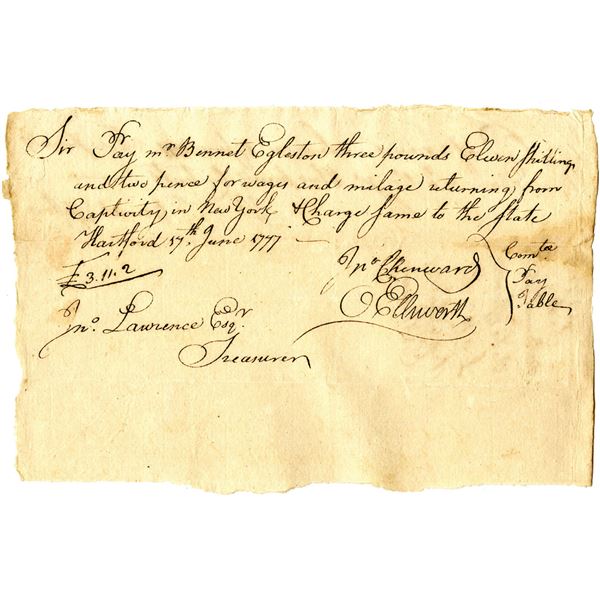 Sir Pay mr Bennet Egleston three pounds Eleven Shillings
and two pence for wages and milage returning from
Captivity in New York & Charge Same to the State
Hartford 17th June 1777
£3.11.2
Jno Chenward
O Ellsworth
Comtee
Pay
Table
Jno. Lawrence Esqr.
Treasurer